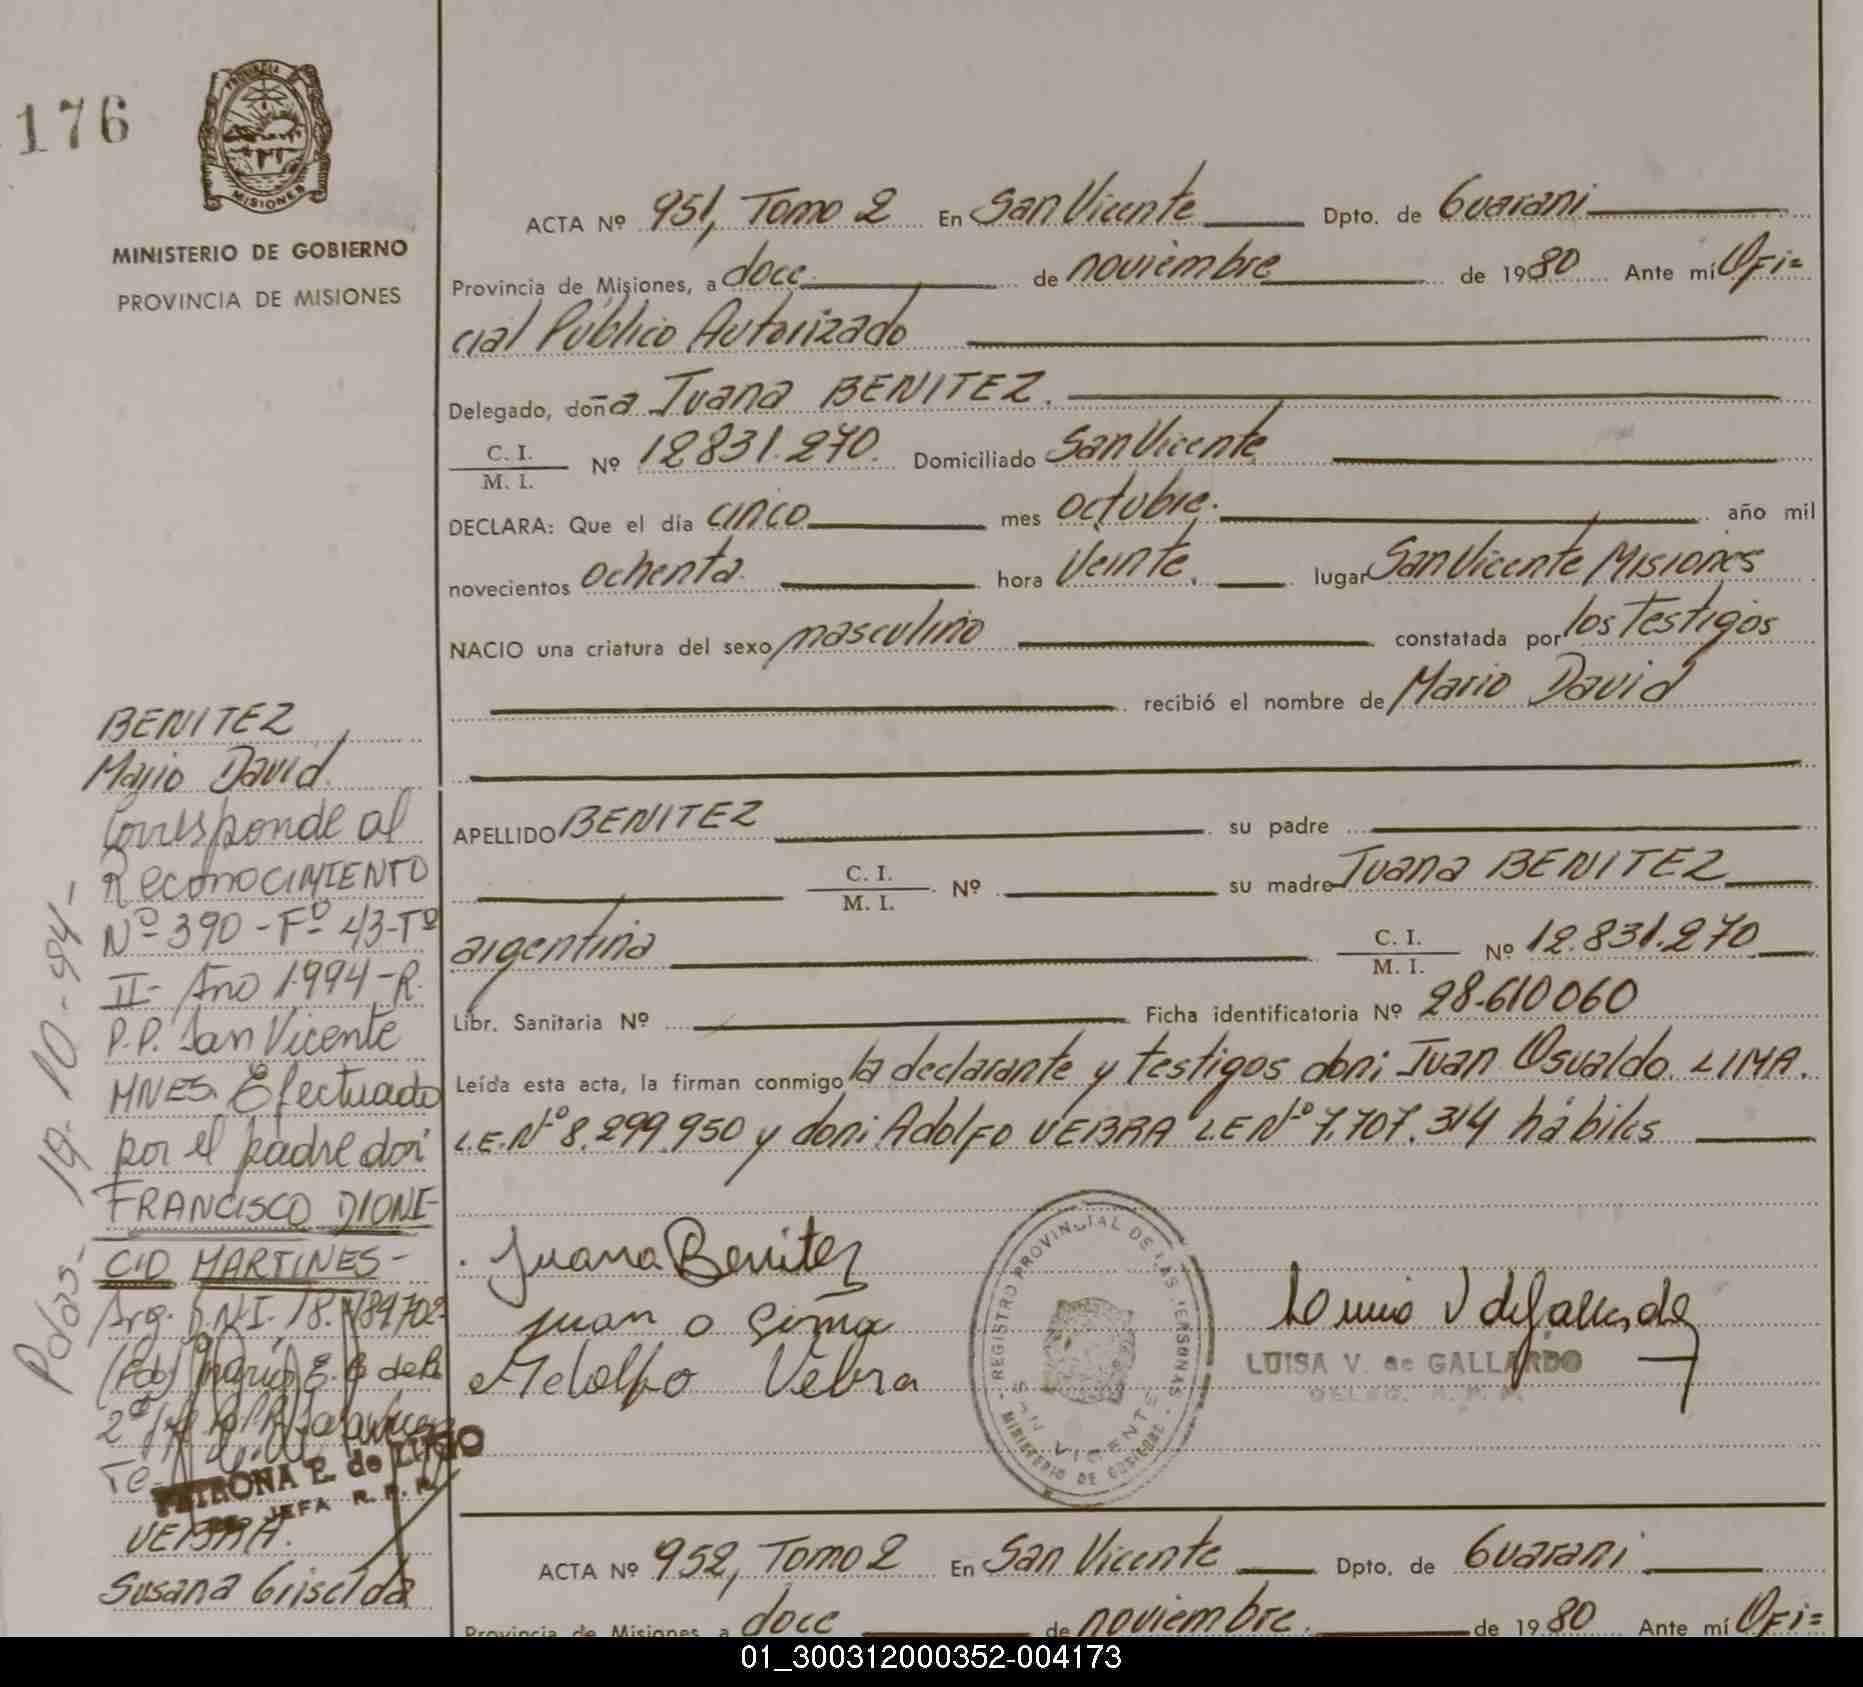 176
PROVINCIA
MISIONES
MINISTERIO DE GOBIERNO
PROVINCIA DE MISIONES
ACTA Nº 951, Tomo 2 En San Vicente Dpto. de Guarani
Provincia de Misiones, a doce de noviembre de 1980 Ante mí Ofi=
cial Público Autorizado
Delegado, doña Juana BENITEZ.
C. I.
M. I.
Nº 12831.270. Domiciliado San Vicente
DECLARA: Que el día cinco mes octubre. año mil
novecientos ochenta. hora Veinte. lugar San Vicente Misiones
NACIO una criatura del sexo masculino constatada por los Testigos
recibió el nombre de Mario David
APELLIDO BENITEZ su padre
C. I.
M. I.
Nº su madre Juana BENITEZ
argentina
C. I.
M. I.
Nº 12.831.270
Libr. Sanitaria Nº Ficha identificatoria Nº 28.610060
Leída esta acta, la firman conmigo la declarante y testigos don: Juan Osvaldo LIMA.
L.E.Nº 8.299.950 y don: Adolfo VEBRA L.E Nº 7.707.314 hábiles
Juana Benitez
Juan O
Vebra
REGISTRO PROVINCIAL DE LAS PERSONAS
SAN VICENTE
MINISTERIO DE GOBIERNO
LUISA V. de GALLARDO
BENITEZ
Mario David
Corresponde al
Reconocimiento
Nº 390 - Fº 43-Tº
II- Año 1994-R.
P.P. San Vicente
MNES. Efectuado
por el padre don
FRANCISCO DIONI-
CIO MARTINES-
Arg. D.N.I. 18.
Pdas- 19-10-94-
PETRONA E. de LUGO
JEFA R. P. P.
VEBRA.
Susana Griselda
ACTA Nº 952, Tomo 2 En San Vicente Dpto. de Guarani
Provincia de Misiones, a doce de noviembre. de 1980 Ante mí Ofi=
01_300312000352-004173